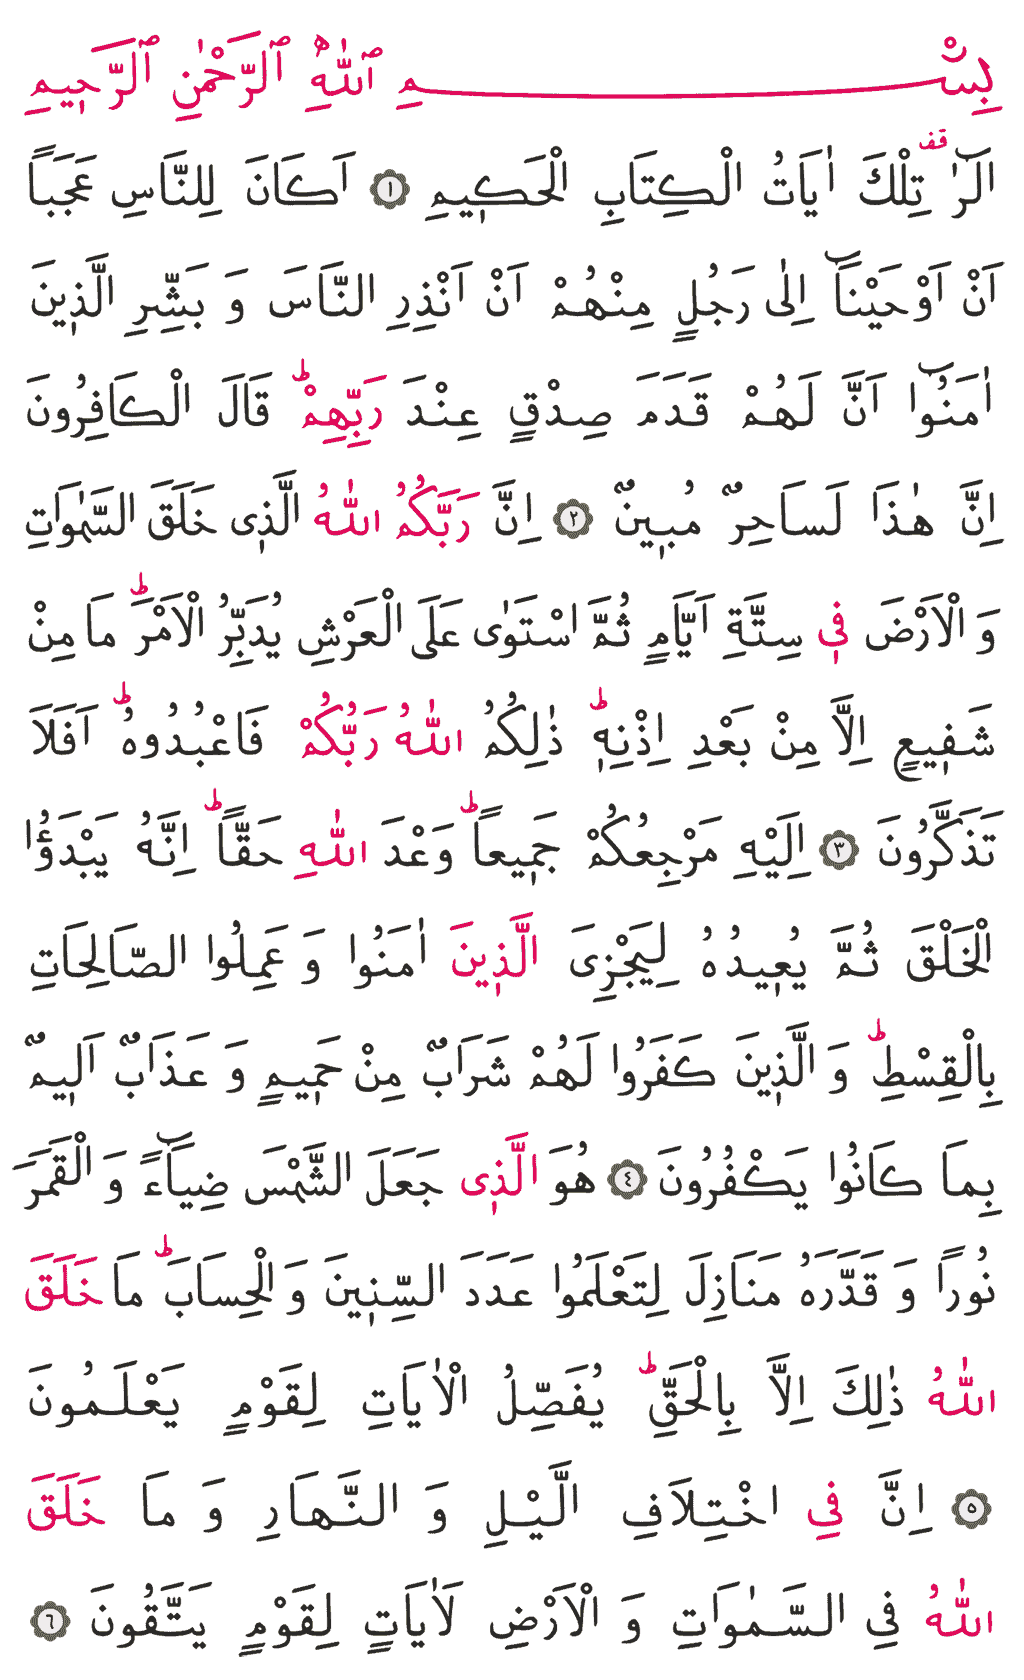 بِسْمِ ٱللّٰهِ ٱلرَّحْمٰنِ ٱلرَّحٖيمِ
الٓرٰ ۚقف تِلْكَ اٰيَاتُ الْكِتَابِ الْحَكٖيمِ ١ اَكَانَ لِلنَّاسِ عَجَبًا
اَنْ اَوْحَيْنَٓا اِلٰى رَجُلٍ مِنْهُمْ اَنْ اَنْذِرِ النَّاسَ وَ بَشِّرِ الَّذٖينَ
اٰمَنُٓوا اَنَّ لَهُمْ قَدَمَ صِدْقٍ عِنْدَ رَبِّهِمْؕ قَالَ الْكَافِرُونَ
اِنَّ هٰذَا لَسَاحِرٌ مُبٖينٌ ٢ اِنَّ رَبَّكُمُ اللّٰهُ الَّذٖى خَلَقَ السَّمٰوَاتِ
وَ الْاَرْضَ فٖى سِتَّةِ اَيَّامٍ ثُمَّ اسْتَوٰى عَلَى الْعَرْشِ يُدَبِّرُ الْاَمْرَؕ مَا مِنْ
شَفٖيعٍ اِلَّا مِنْ بَعْدِ اِذْنِهٖؕ ذٰلِكُمُ اللّٰهُ رَبُّكُمْ فَاعْبُدُوهُؕ اَفَلَا
تَذَكَّرُونَ ٣ اِلَيْهِ مَرْجِعُكُمْ جَمٖيعًاؕ وَعْدَ اللّٰهِ حَقًّاؕ اِنَّهُ يَبْدَؤُا
الْخَلْقَ ثُمَّ يُعٖيدُهُ لِيَجْزِىَ الَّذٖينَ اٰمَنُوا وَ عَمِلُوا الصَّالِحَاتِ
بِالْقِسْطِؕ وَ الَّذٖينَ كَفَرُوا لَهُمْ شَرَابٌ مِنْ حَمٖيمٍ وَ عَذَابٌ اَلٖيمٌ
بِمَا كَانُوا يَكْفُرُونَ ٤ هُوَ الَّذٖى جَعَلَ الشَّمْسَ ضِيَٓاءً وَ الْقَمَرَ
نُورًا وَ قَدَّرَهُ مَنَازِلَ لِتَعْلَمُوا عَدَدَ السِّنٖينَ وَ الْحِسَابَؕ مَا خَلَقَ
اللّٰهُ ذٰلِكَ اِلَّا بِالْحَقِّؕ يُفَصِّلُ الْاٰيَاتِ لِقَوْمٍ يَعْلَمُونَ
٥ اِنَّ فِى اخْتِلَافِ الَّيْلِ وَ النَّهَارِ وَ مَا خَلَقَ
اللّٰهُ فِى السَّمٰوَاتِ وَ الْاَرْضِ لَاٰيَاتٍ لِقَوْمٍ يَتَّقُونَ ٦